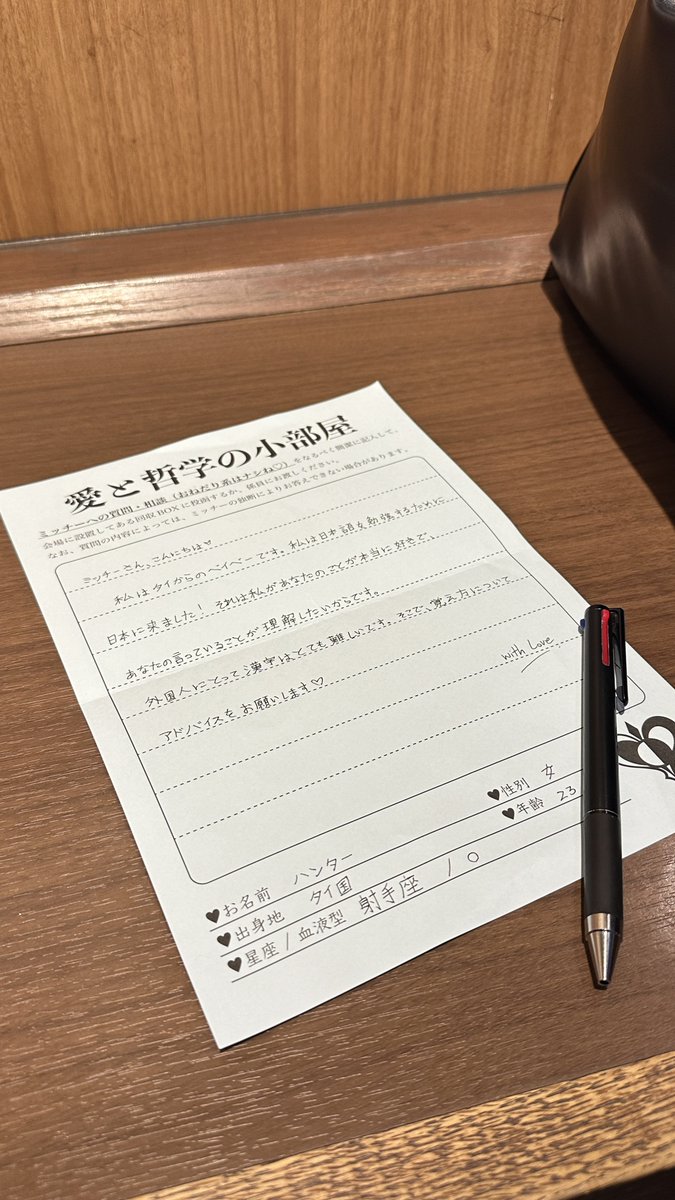 愛と哲学の小部屋
ミッチーへの質問・相談(おねだり系はナシね♡)をなるべく簡潔に記入して、
会場に設置してある回収BOXに投函するか、係員にお渡しください。
なお、質問の内容によっては、ミッチーの独断によりお答えできない場合があります。
ミッチーさん、こんにちは♡
私はタイからのベイベーです。私は日本語を勉強するために
日本に来ました! それは私があなたのことが本当に好きで、
あなたの言っていることが理解したいからです。
外国人にとって漢字はとても難しいです。そこで、覚え方について
アドバイスをお願いします♡
with Love
♥性別 女
♥年齢 23
♥お名前 ハンター
♥出身地 タイ国
♥星座/血液型 射手座 / O